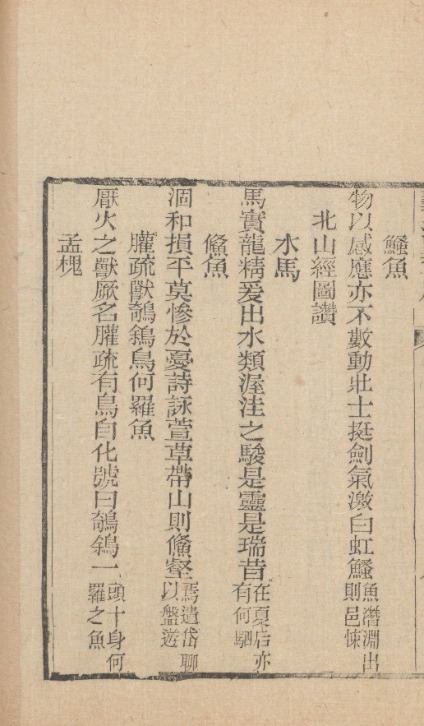 鱃魚
物以感應亦不數動壯士挺劍氣激白虹鱃魚潛淵出則邑悚
北山經圖讚
水馬
馬實龍精爰出水類渥洼之駿是靈是瑞昔在夏后亦有何駟
儵魚
涸和損平莫慘於憂詩詠萱草帶山則儵壑焉遺岱聊以盤遊
䑏疏獸鵸鵌鳥何羅魚
厭火之獸厥名䑏疏有鳥自化號曰鵸鵌一頭十身何羅之魚
孟槐